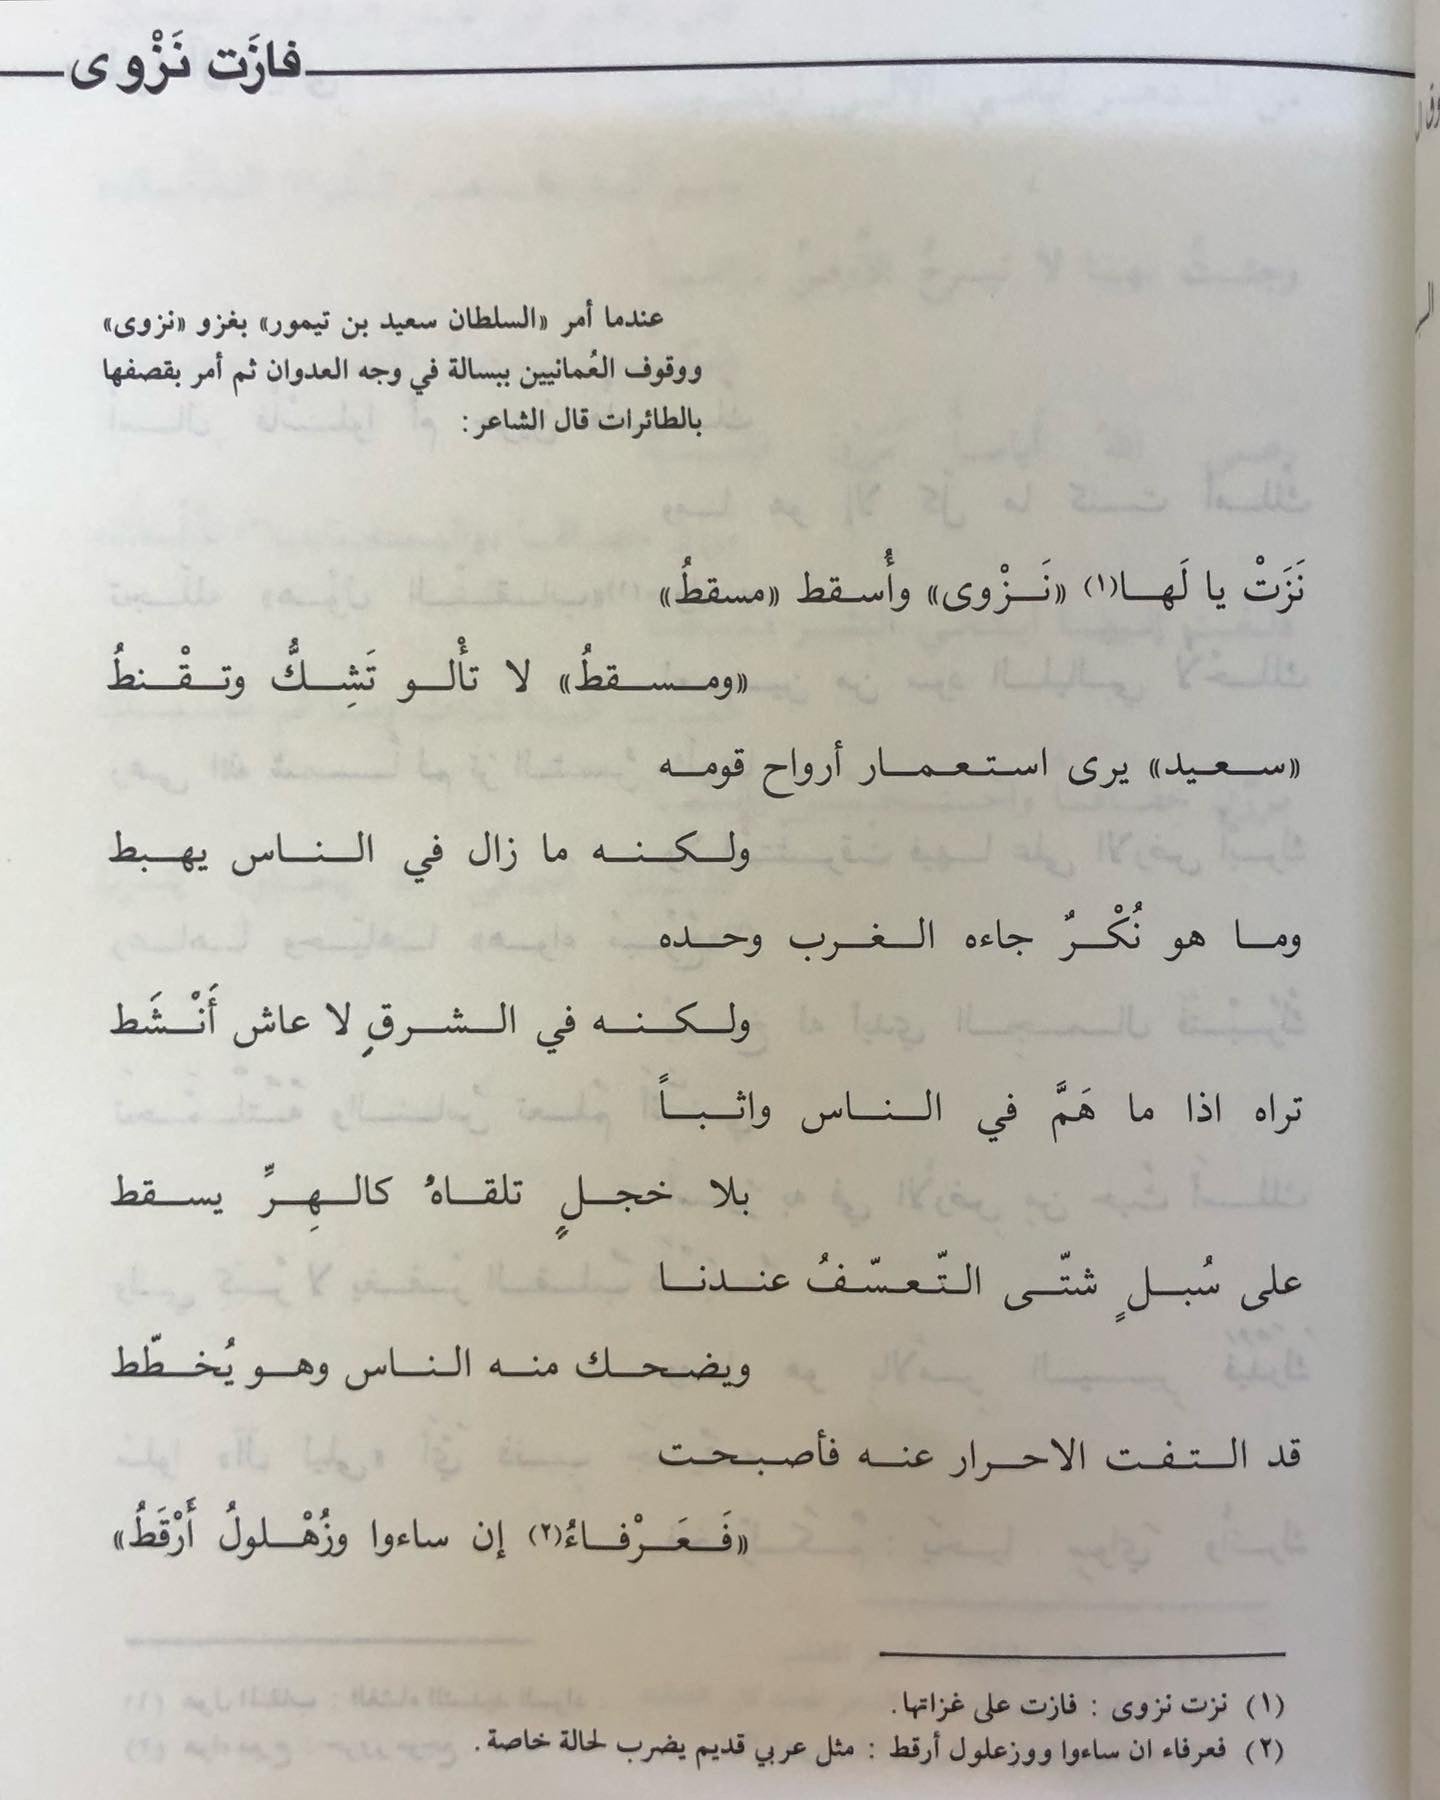 فازَت نَزْوى
عندما أمر «السلطان سعيد بن تيمور» بغزو «نزوى»
ووقوف العُمانيين ببسالة في وجه العدوان ثم أمر بقصفها
بالطائرات قال الشاعر :
نَزَتْ يا لَها(١) «نَزْوى» وأُسقط «مسقطُ»
«ومسقطُ» لا تأْلو تَشِكُّ وتقْنطُ
«سعيد» يرى استعمار أرواح قومه
ولكنه ما زال في الناس يهبط
وما هو نُكْرٌ جاءه الغرب وحده
ولكنه في الشرقِ لا عاش أَنْشَط
تراه اذا ما هَمَّ في الناس واثباً
بلا خجلٍ تلقاهُ كالهِرِّ يسقط
على سُبلٍ شتّى التّعسّفُ عندنا
ويضحك منه الناس وهو يُخطّط
قد التفت الاحرار عنه فأصبحت
«فَعَرْفاءُ(٢) إن ساءوا وزُهْلولُ أَرْقَطُ»
(١) نزت نزوى : فازت على غزاتها.
(٢) فعرفاء ان ساءوا ووزعلول أرقط : مثل عربي قديم يضرب لحالة خاصة.